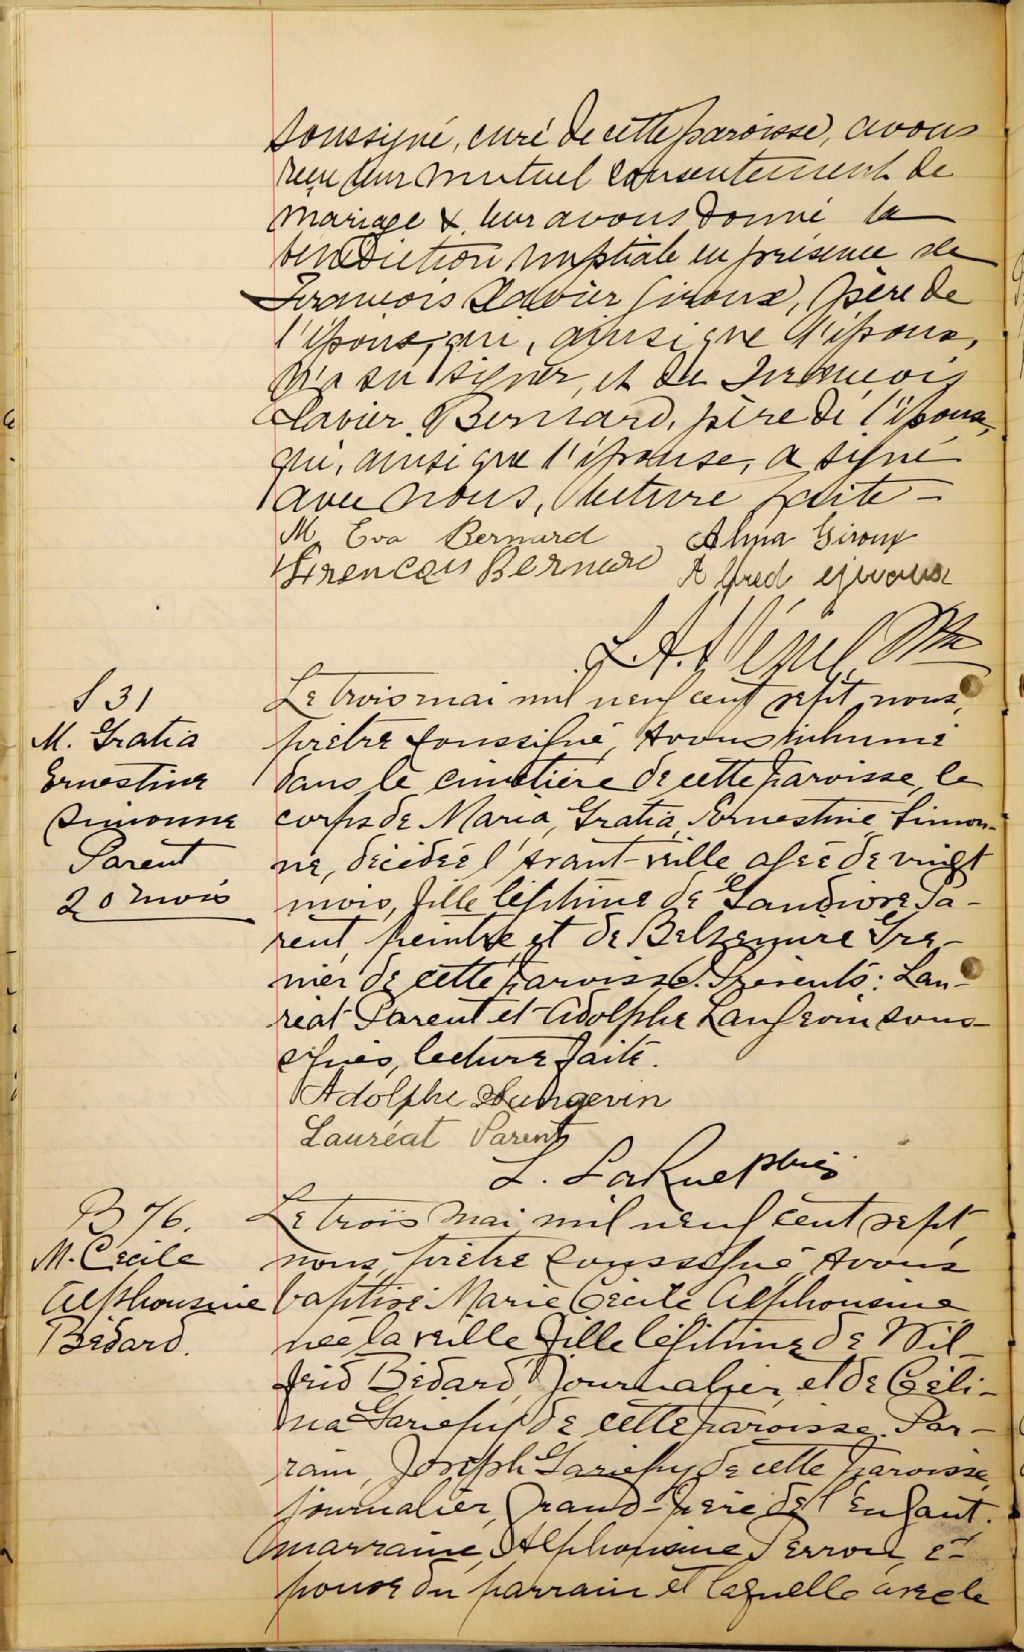 soussigné, curé de cette paroisse, avons
reçu leur mutuel consentement de
mariage & leur avons donné la
bénédiction nuptiale en présence de
François Xavier Giroux, père de
l'époux, qui, ainsi que l'époux,
n'a su signer, et de François
Xavier Bernard, père de l'épouse,
qui, ainsi que l'épouse, a signé
avec nous, lecture faite -
M. Eva Bernard Alma Giroux
Francois Bernard Alfred giroux
L. A. Ptre
S 31
M. Gratia
Ernestine
Simonne
Parent
20 mois
Le trois mai mil neuf cent sept, nous,
prêtre soussigné, avons inhumé
dans le cimetière de cette paroisse, le
corps de Maria, Gratia, Ernestine Simon-
ne, décédée l'avant-veille agée de vingt
mois, fille légitime de Gaudiore Pa-
rent, peintre et de Belzemire Gre-
nier de cette paroisse. Présents: Lau-
réat Parent et Adolphe Langevin sous-
signés, lecture faite.
Adolphe Langevin
Lauréat Parent
L. LaRue ptre
B 76.
M. Cécile
Alphonsine
Bédard.
Le trois mai mil neuf cent sept,
nous, prêtre soussigné, avons
baptisé Marie Cécile Alphonsine
née la veille fille légitime de Wil-
frid Bédard, journalier, et de Céli-
na Gariépy de cette paroisse. Par-
rain, Joseph Gariépy de cette paroisse,
journalier, grand-père de l'enfant.
marraine, Alphonsine Perron, é-
pouse du parrain et laquelle avec le